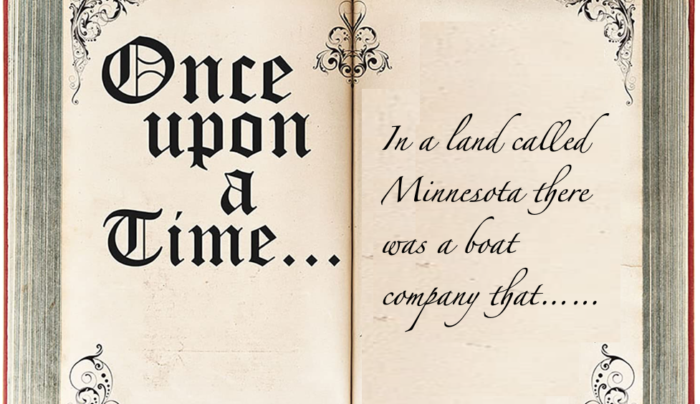 Once
upon
a
Time...
In a land called
Minnesota there
was a boat
company that......